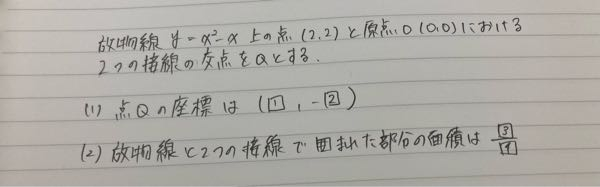 放物線 y=x²-x 上の点(2,2)と原点O(0,0)における
2つの接線の交点をQとする.
(1) 点Qの座標は (□1, -□2)
(2) 放物線と2つの接線で囲まれた部分の面積は □3/□4